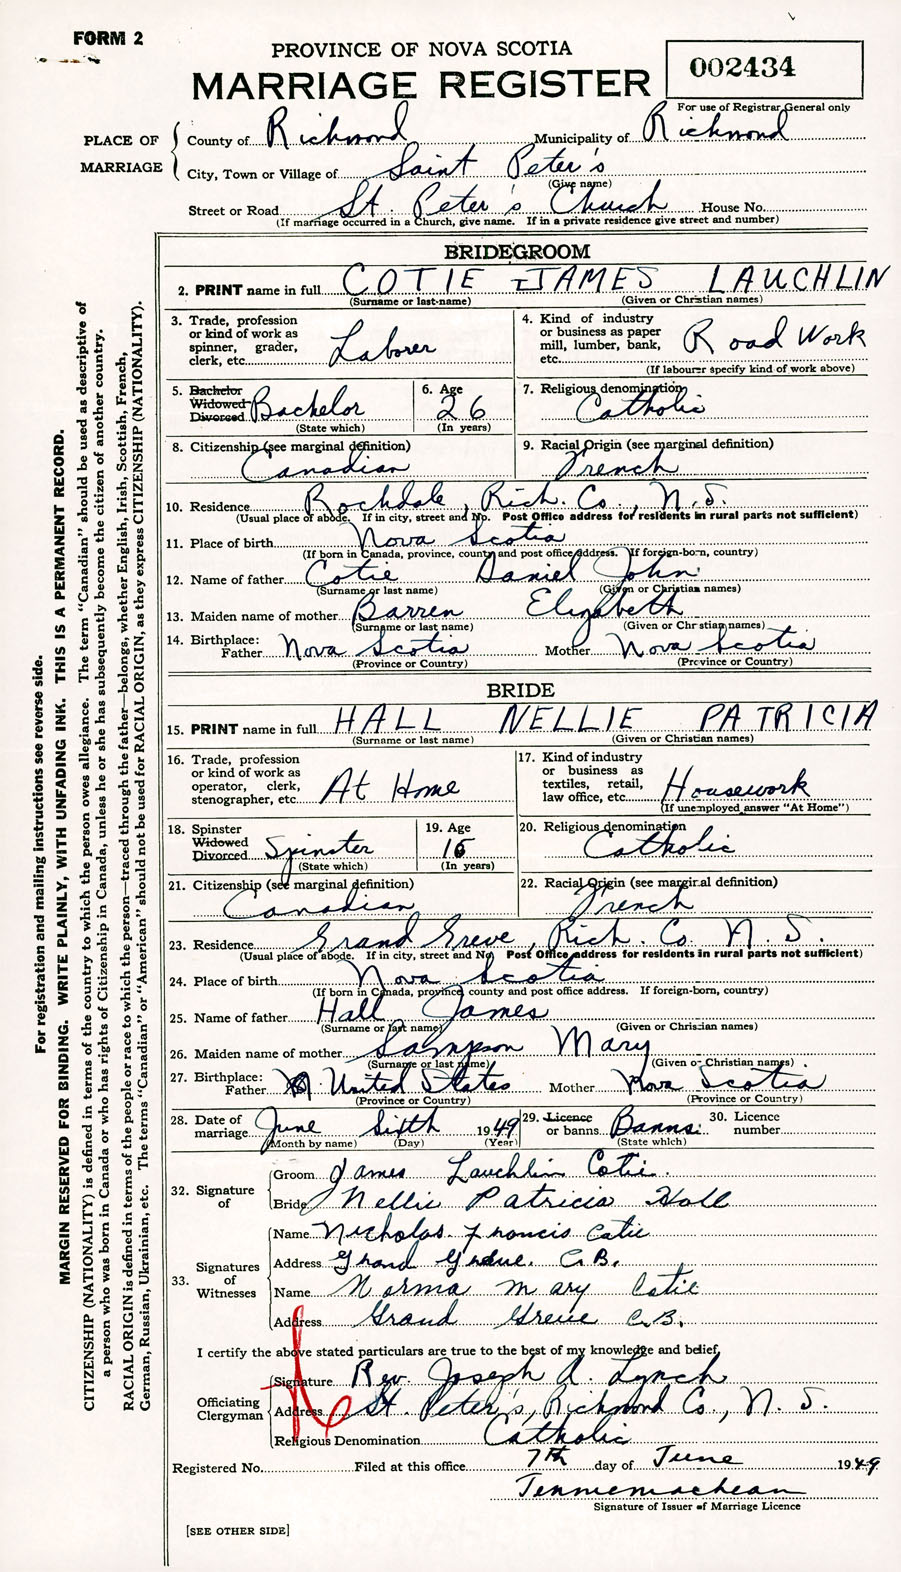 FORM 2
PROVINCE OF NOVA SCOTIA
MARRIAGE REGISTER
002434
For use of Registrar General only
PLACE OF MARRIAGE
County of Richmond Municipality of Richmond
City, Town or Village of Saint Peter's
(Give name)
Street or Road St. Peter's Church House No.
(If marriage occurred in a Church, give name. If in a private residence give street and number)
BRIDEGROOM
2. PRINT name in full COTIE JAMES LAUCHLIN
(Surname or last-name) (Given or Christian names)
3. Trade, profession or kind of work as spinner, grader, clerk, etc. Laborer
4. Kind of industry or business as paper mill, lumber, bank, etc. Road Work
(If labourer specify kind of work above)
5. Bachelor Widowed Divorced Bachelor
(State which)
6. Age 26
(In years)
7. Religious denomination Catholic
8. Citizenship (see marginal definition) Canadian
9. Racial Origin (see marginal definition) French
10. Residence Rochdale, Rich. Co., N.S.
(Usual place of abode. If in city, street and No. Post Office address for residents in rural parts not sufficient)
11. Place of birth Nova Scotia
(If born in Canada, province, county and post office address. If foreign-born, country)
12. Name of father Cotie Daniel John
(Surname or last name) (Given or Christian names)
13. Maiden name of mother Barren Elizabeth
(Surname or last name) (Given or Christian names)
14. Birthplace: Father Nova Scotia Mother Nova Scotia
(Province or Country) (Province or Country)
BRIDE
15. PRINT name in full HALL NELLIE PATRICIA
(Surname or last name) (Given or Christian names)
16. Trade, profession or kind of work as operator, clerk, stenographer, etc. At Home
17. Kind of industry or business as textiles, retail, law office, etc. Housework
(If unemployed answer "At Home")
18. Spinster Widowed Divorced Spinster
(State which)
19. Age
(In years)
20. Religious denomination Catholic
21. Citizenship (see marginal definition) Canadian
22. Racial Origin (see marginal definition) French
23. Residence Grand Greve, Rich. Co. N.S.
(Usual place of abode. If in city, street and No. Post Office address for residents in rural parts not sufficient)
24. Place of birth Nova Scotia
(If born in Canada, province, county and post office address. If foreign-born, country)
25. Name of father Hall James
(Surname or last name) (Given or Christian names)
26. Maiden name of mother Sampson Mary
(Surname or last name) (Given or Christian names)
27. Birthplace: Father United States Mother Nova Scotia
(Province or Country) (Province or Country)
28. Date of marriage June Sixth 1949
(Month by name) (Day) (Year)
29. Licence or banns Banns.
(State which)
30. Licence number
32. Signature of
Groom James Lauchlin Cotie.
Bride Nellie Patricia Hall
33. Signatures of Witnesses
Name Nicholas Francis Cotie
Address Grand Greve. C.B.
Name Norma Mary Cotie
Address Grand Greve C.B.
I certify the above stated particulars are true to the best of my knowledge and belief,
Officiating Clergyman
Signature Rev. Joseph A. Lynch
Address St. Peter's, Richmond Co., N.S.
Religious Denomination Catholic
Registered No. Filed at this office 7th day of June 1949
Signature of Issuer of Marriage Licence
[SEE OTHER SIDE]
For registration and mailing instructions see reverse side.
MARGIN RESERVED FOR BINDING. WRITE PLAINLY, WITH UNFADING INK. THIS IS A PERMANENT RECORD.
CITIZENSHIP (NATIONALITY) is defined in terms of the country to which the person owes allegiance. The term "Canadian" should be used as descriptive of
a person who was born in Canada or who has rights of Citizenship in Canada, unless he or she has subsequently become the citizen of another country.
RACIAL ORIGIN is defined in terms of the people or race to which the person—traced through the father—belongs, whether English, Irish, Scottish, French,
German, Russian, Ukrainian, etc. The terms "Canadian" or "American" should not be used for RACIAL ORIGIN, as they express CITIZENSHIP (NATIONALITY).